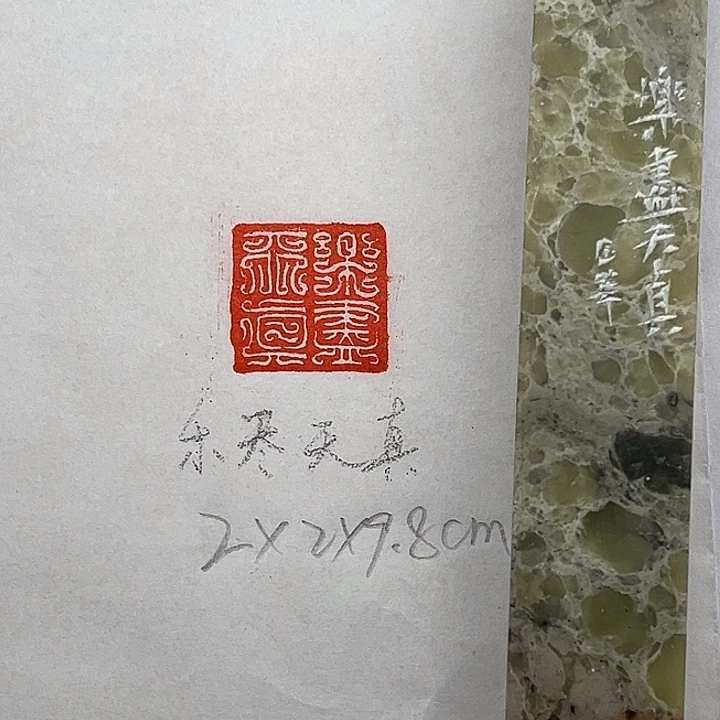 樂盡
天真
乐尽天真
2×2×9.8cm
樂盡天真